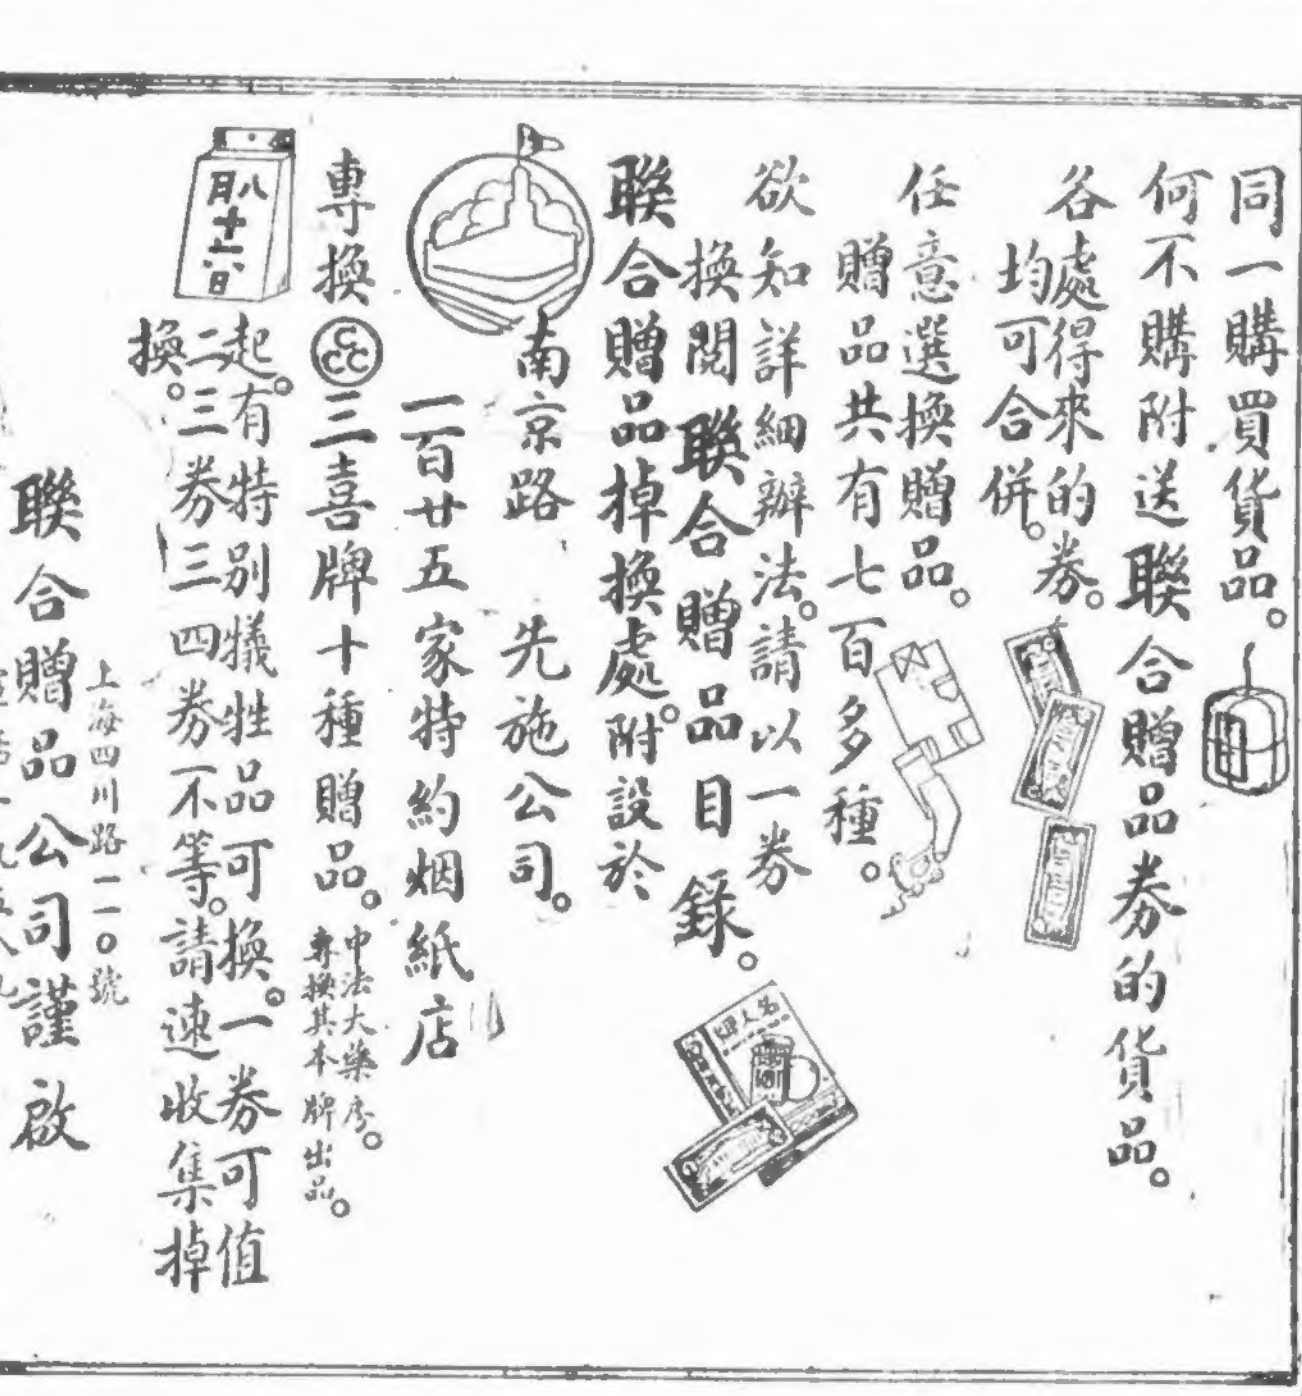 同一購買貨品。
何不購附送聯合贈品券的貨品。
各處得來的券。
均可合併。
任意選換贈品。
贈品共有七百多種。
欲知詳細辦法。請以一券
換閱聯合贈品目錄。
聯合贈品掉換處。附設於
南京路 先施公司。
一百廿五家特約烟紙店
專換CCC三喜牌十種贈品。
中法大藥房。
專換其本牌出品。
八月十六日
起。有特別犧牲品可換。一券可值
二三券三四券不等。請速收集掉
換。
上海四川路一一〇號
聯合贈品公司謹啟